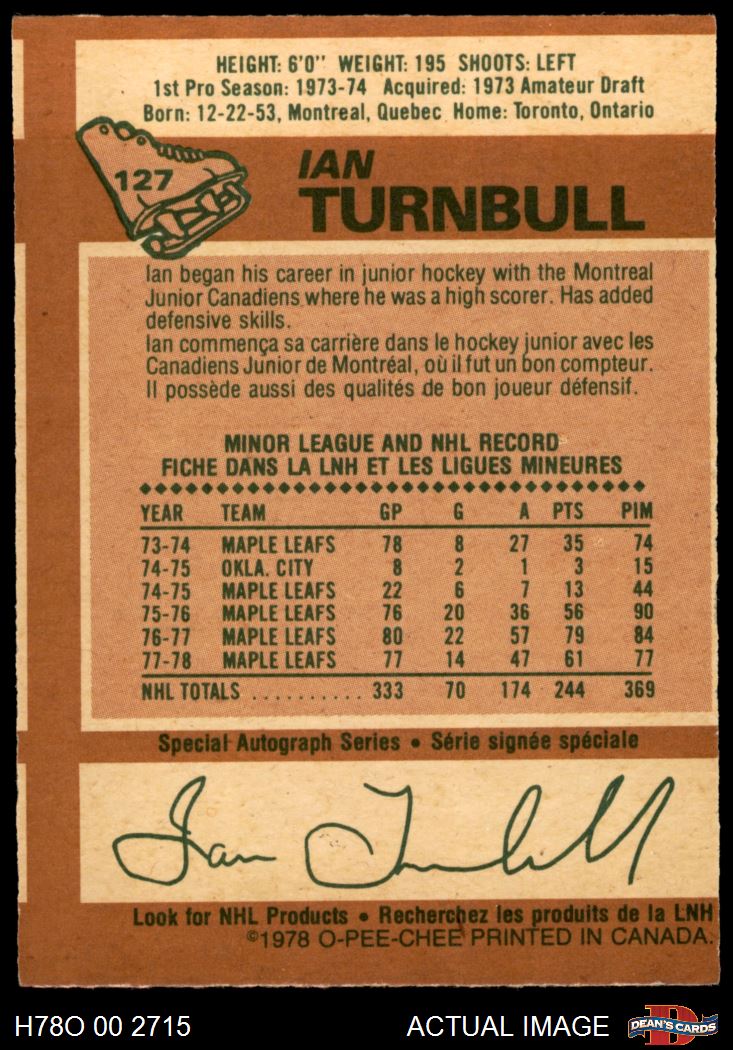 HEIGHT: 6'0" WEIGHT: 195 SHOOTS: LEFT
1st Pro Season: 1973-74 Acquired: 1973 Amateur Draft
Born: 12-22-53, Montreal, Quebec Home: Toronto, Ontario
127
IAN
TURNBULL
Ian began his career in junior hockey with the Montreal
Junior Canadiens where he was a high scorer. Has added
defensive skills.
Ian commença sa carrière dans le hockey junior avec les
Canadiens Junior de Montréal, où il fut un bon compteur.
Il possède aussi des qualités de bon joueur défensif.
MINOR LEAGUE AND NHL RECORD
FICHE DANS LA LNH ET LES LIGUES MINEURES
YEAR TEAM GP G A PTS PIM
73-74 MAPLE LEAFS 78 8 27 35 74
74-75 OKLA. CITY 8 2 1 3 15
74-75 MAPLE LEAFS 22 6 7 13 44
75-76 MAPLE LEAFS 76 20 36 56 90
76-77 MAPLE LEAFS 80 22 57 79 84
77-78 MAPLE LEAFS 77 14 47 61 77
NHL TOTALS .......... 333 70 174 244 369
Special Autograph Series • Série signée spéciale
Ian Turnbull
Look for NHL Products • Recherchez les produits de la LNH
©1978 O-PEE-CHEE PRINTED IN CANADA.
H78O 00 2715 ACTUAL IMAGE D DEAN'S CARDS